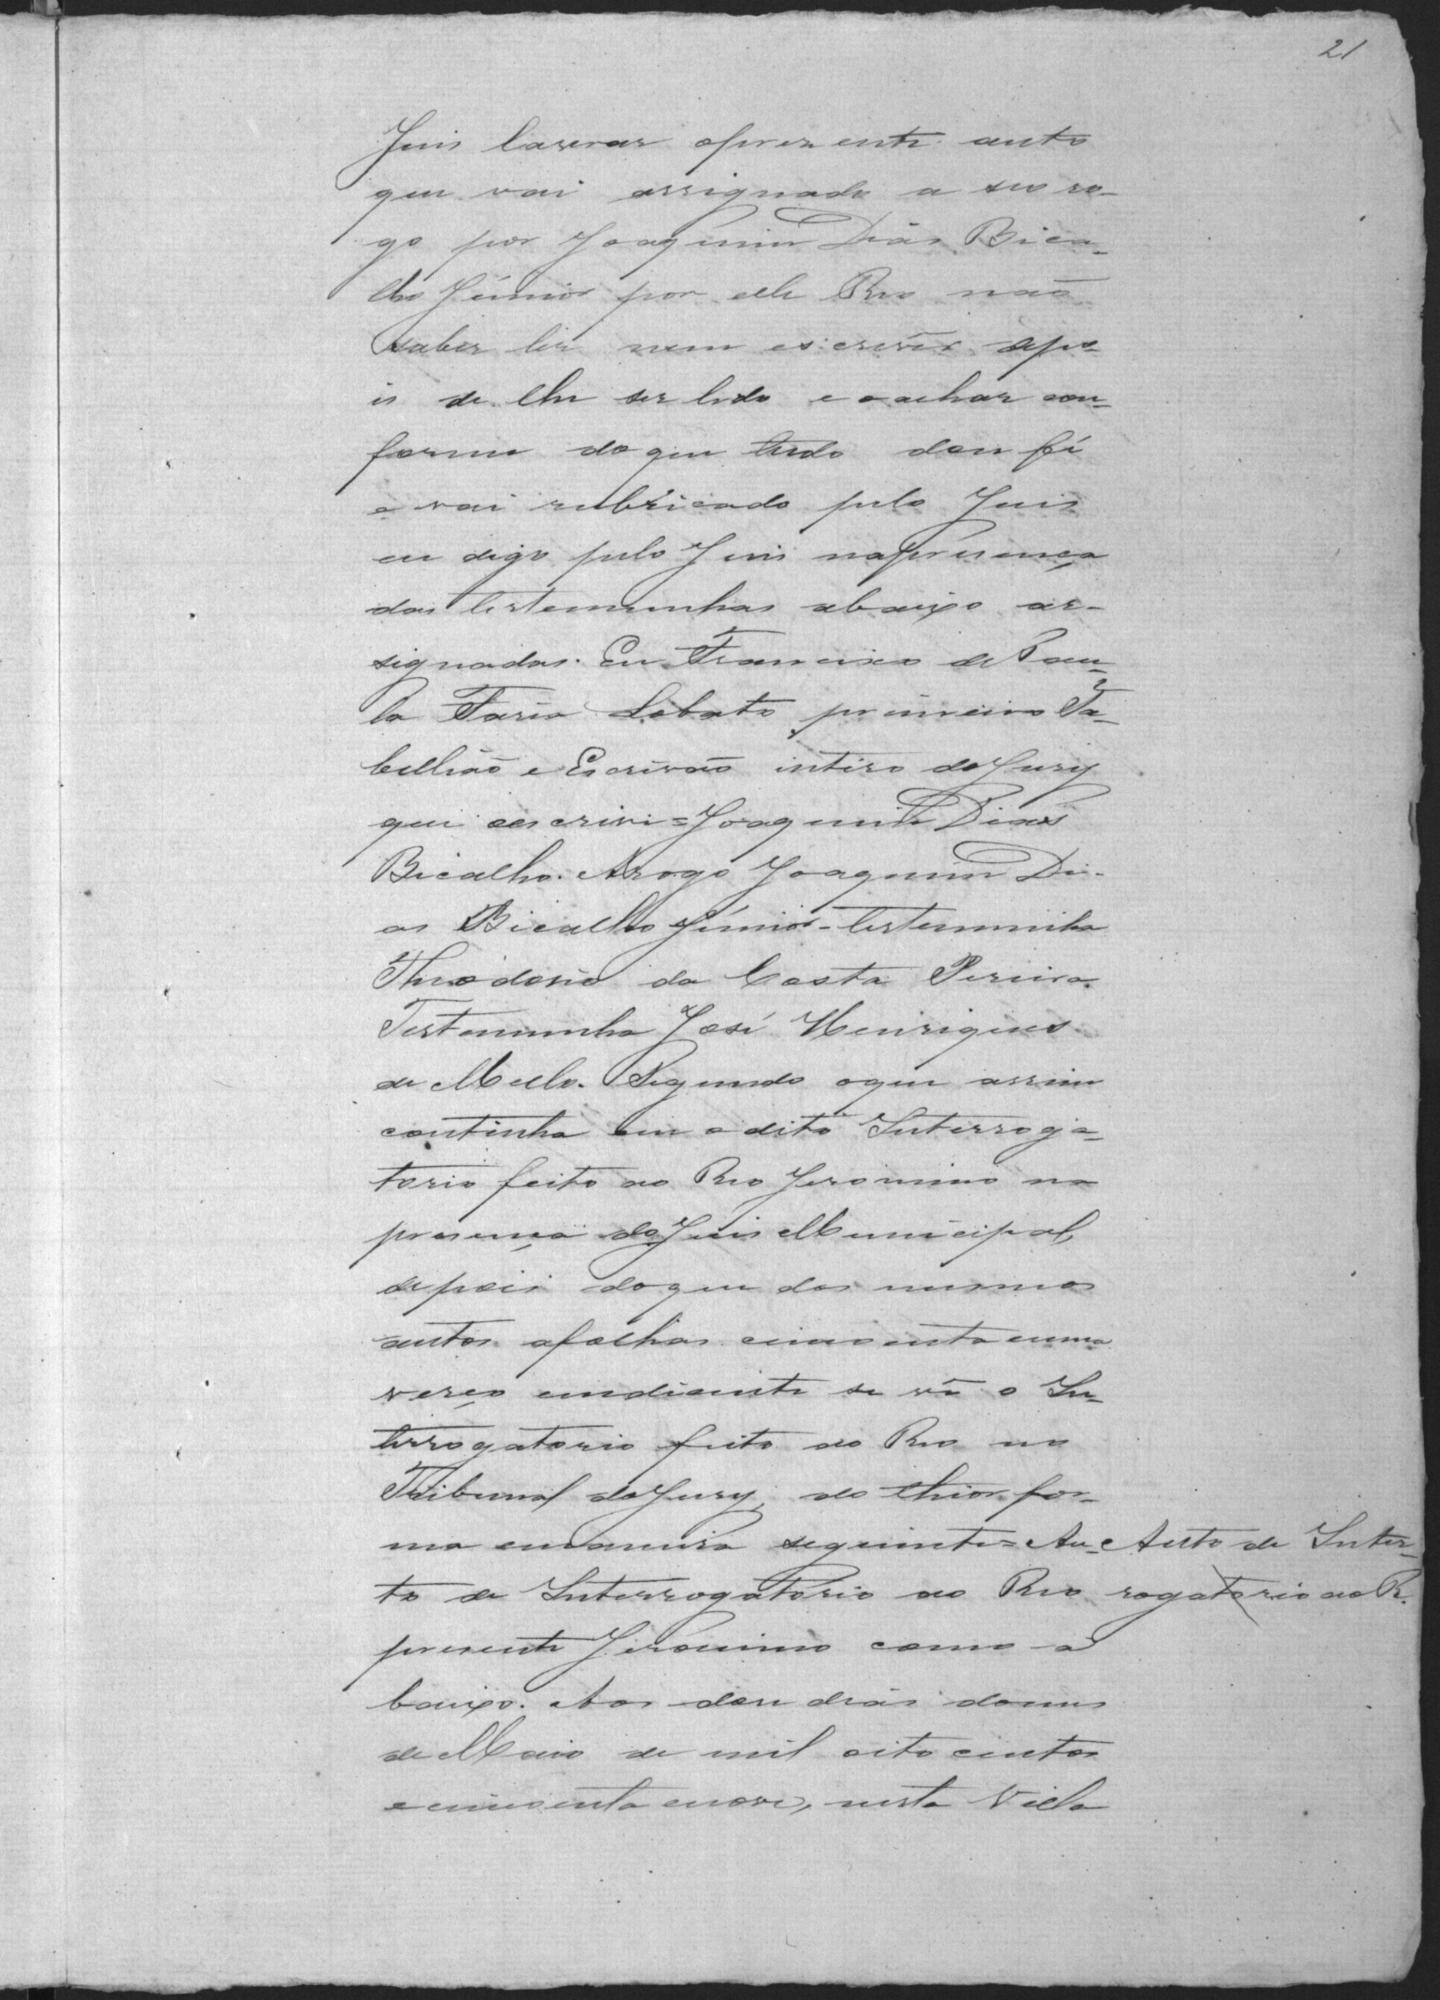 21
Juis lavrar opresente auto
que vai assignado a seo ro-
go por Joaquim Dias Bica-
lho Júnior por elle Reo não
saber ler nem escrever depo-
is de lhe ser lido e o achar con-
forme do que tudo dou fé
e vai rubricado pelo Juis
eu digo pelo Juis napresença
das testemunhas abaixo as-
signadas. Eu Francisco de Pau-
la Faria Lobato primeiro Ta-
bellião e Escrivão intiro do Jury
que oescrivi = Joaquim Dias
Bicalho. Arogo Joaquim Di-
as Bicalho Júnior - testemunha
Theodosio da Costa Pereira.
Testemunha José Henriques
de Mello. Segundo oque assim
continha em o dito Interroga-
torio feito ao Reo Jeronimo na
presença do Juis Municipal,
depois doque dos mesmos
autos afolhas cincoenta euma
verço emdiente se vê o In-
terrogatorio feito ao Reo no
Tribunal do Jury, do thior for-
ma emaneira seguinte = Au- Auto de Inter-
to de Interrogatorio ao Reo rogatorio ao R.
presente Jeronimo como a
baixo. Aos dou dias domes
de Maio de mil oito centos
e cincoenta enove, nesta Villa